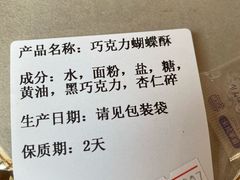 产品名称：巧克力蝴蝶酥
成分：水，面粉，盐，糖，
黄油，黑巧克力，杏仁碎
生产日期：请见包装袋
保质期：2天